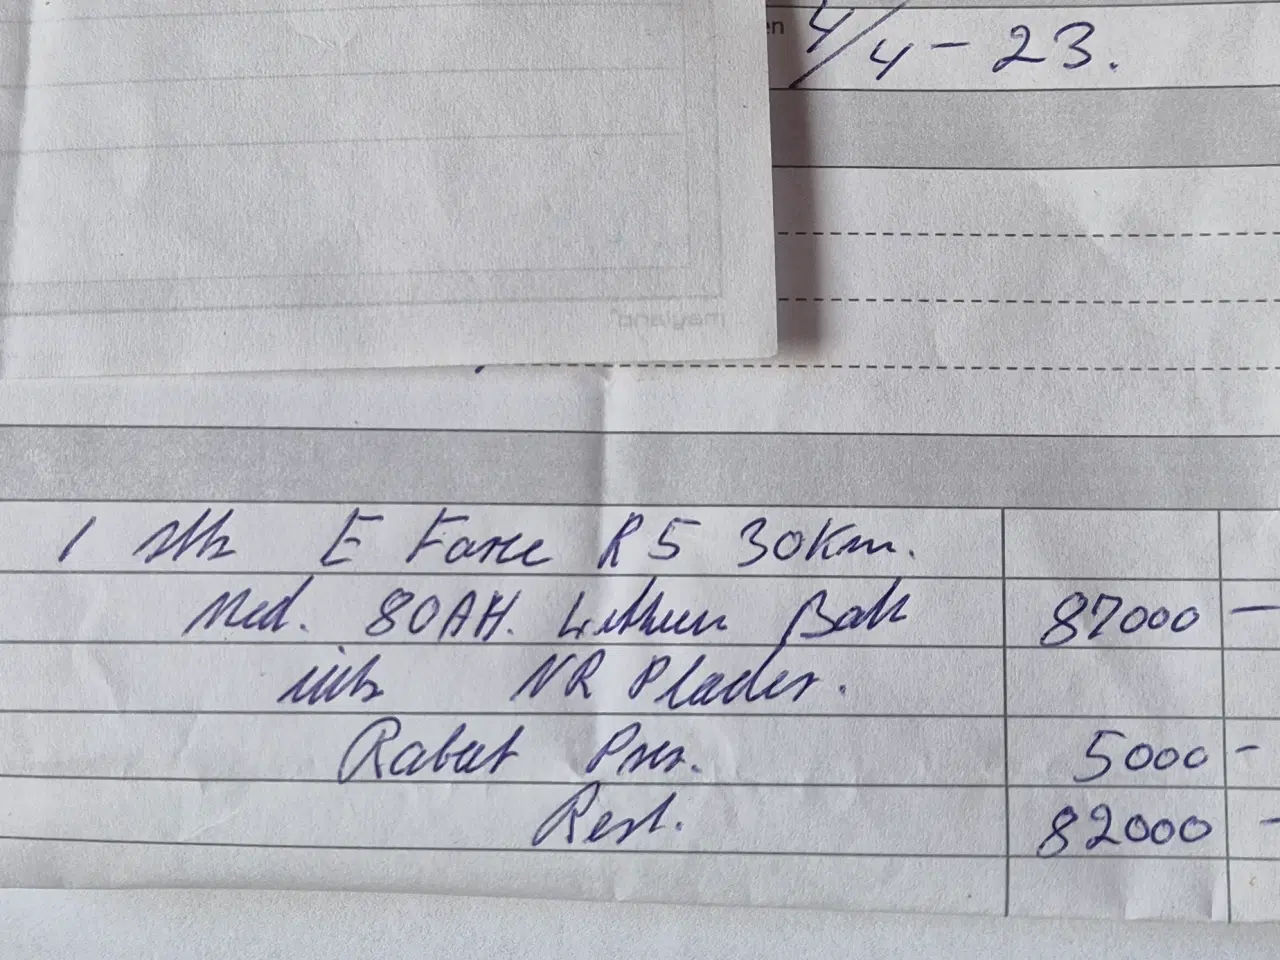 en 4/4-23.
mayland
1 stk E Force R5 30Km.
Med. 80AH. Lithium Batt 87000 -
ink NR Plader.
Rabat Pris. 5000 -
Rest. 82000 -